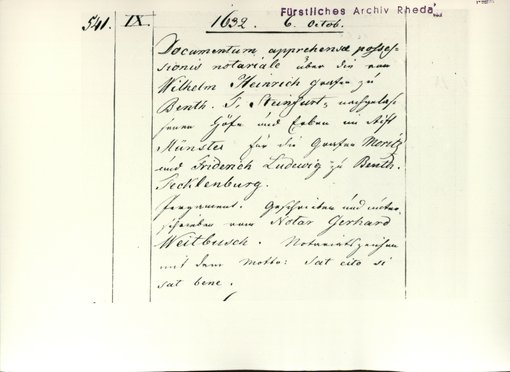 Fürstliches Archiv Rheda
541. IX. 1632. 6. Octob.
Documentum apprehensæ posses-
sionis notariale über die von
Wilhelm Heinrich Grafen zu
Benth. St. Steinfurt, nachgelas-
senen Höfe und Erben im Stift
Münster für die Grafen Moritz
und Friderich Ludewig zu Benth.
Tecklenburg.
Pergament. Geschrieben und unter-
schrieben vom Notar Gerhard
Weitbusch. Notariatszeichen
mit dem Motto: Sat cito si
sat bene.